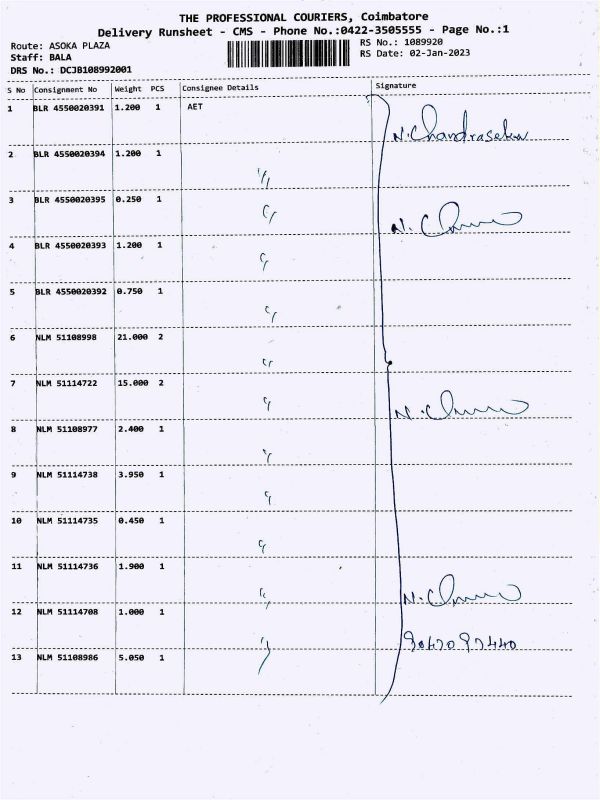 THE PROFESSIONAL COURIERS, Coimbatore
Delivery Runsheet - CMS - Phone No.:0422-3505555 - Page No.:1
Route: ASOKA PLAZA
Staff: BALA
DRS No.: DCJB108992001
RS No.: 1089920
RS Date: 02-Jan-2023
S No Consignment No Weight PCS Consignee Details Signature
1 BLR 4550020391 1.200 1 AET
N. Chandrasekar
2 BLR 4550020394 1.200 1
3 BLR 4550020395 0.250 1
4 BLR 4550020393 1.200 1
5 BLR 4550020392 0.750 1
6 NLM 51108998 21.000 2
7 NLM 51114722 15.000 2
8 NLM 51108977 2.400 1
9 NLM 51114738 3.950 1
10 NLM 51114735 0.450 1
11 NLM 51114736 1.900 1
12 NLM 51114708 1.000 1
13 NLM 51108986 5.050 1